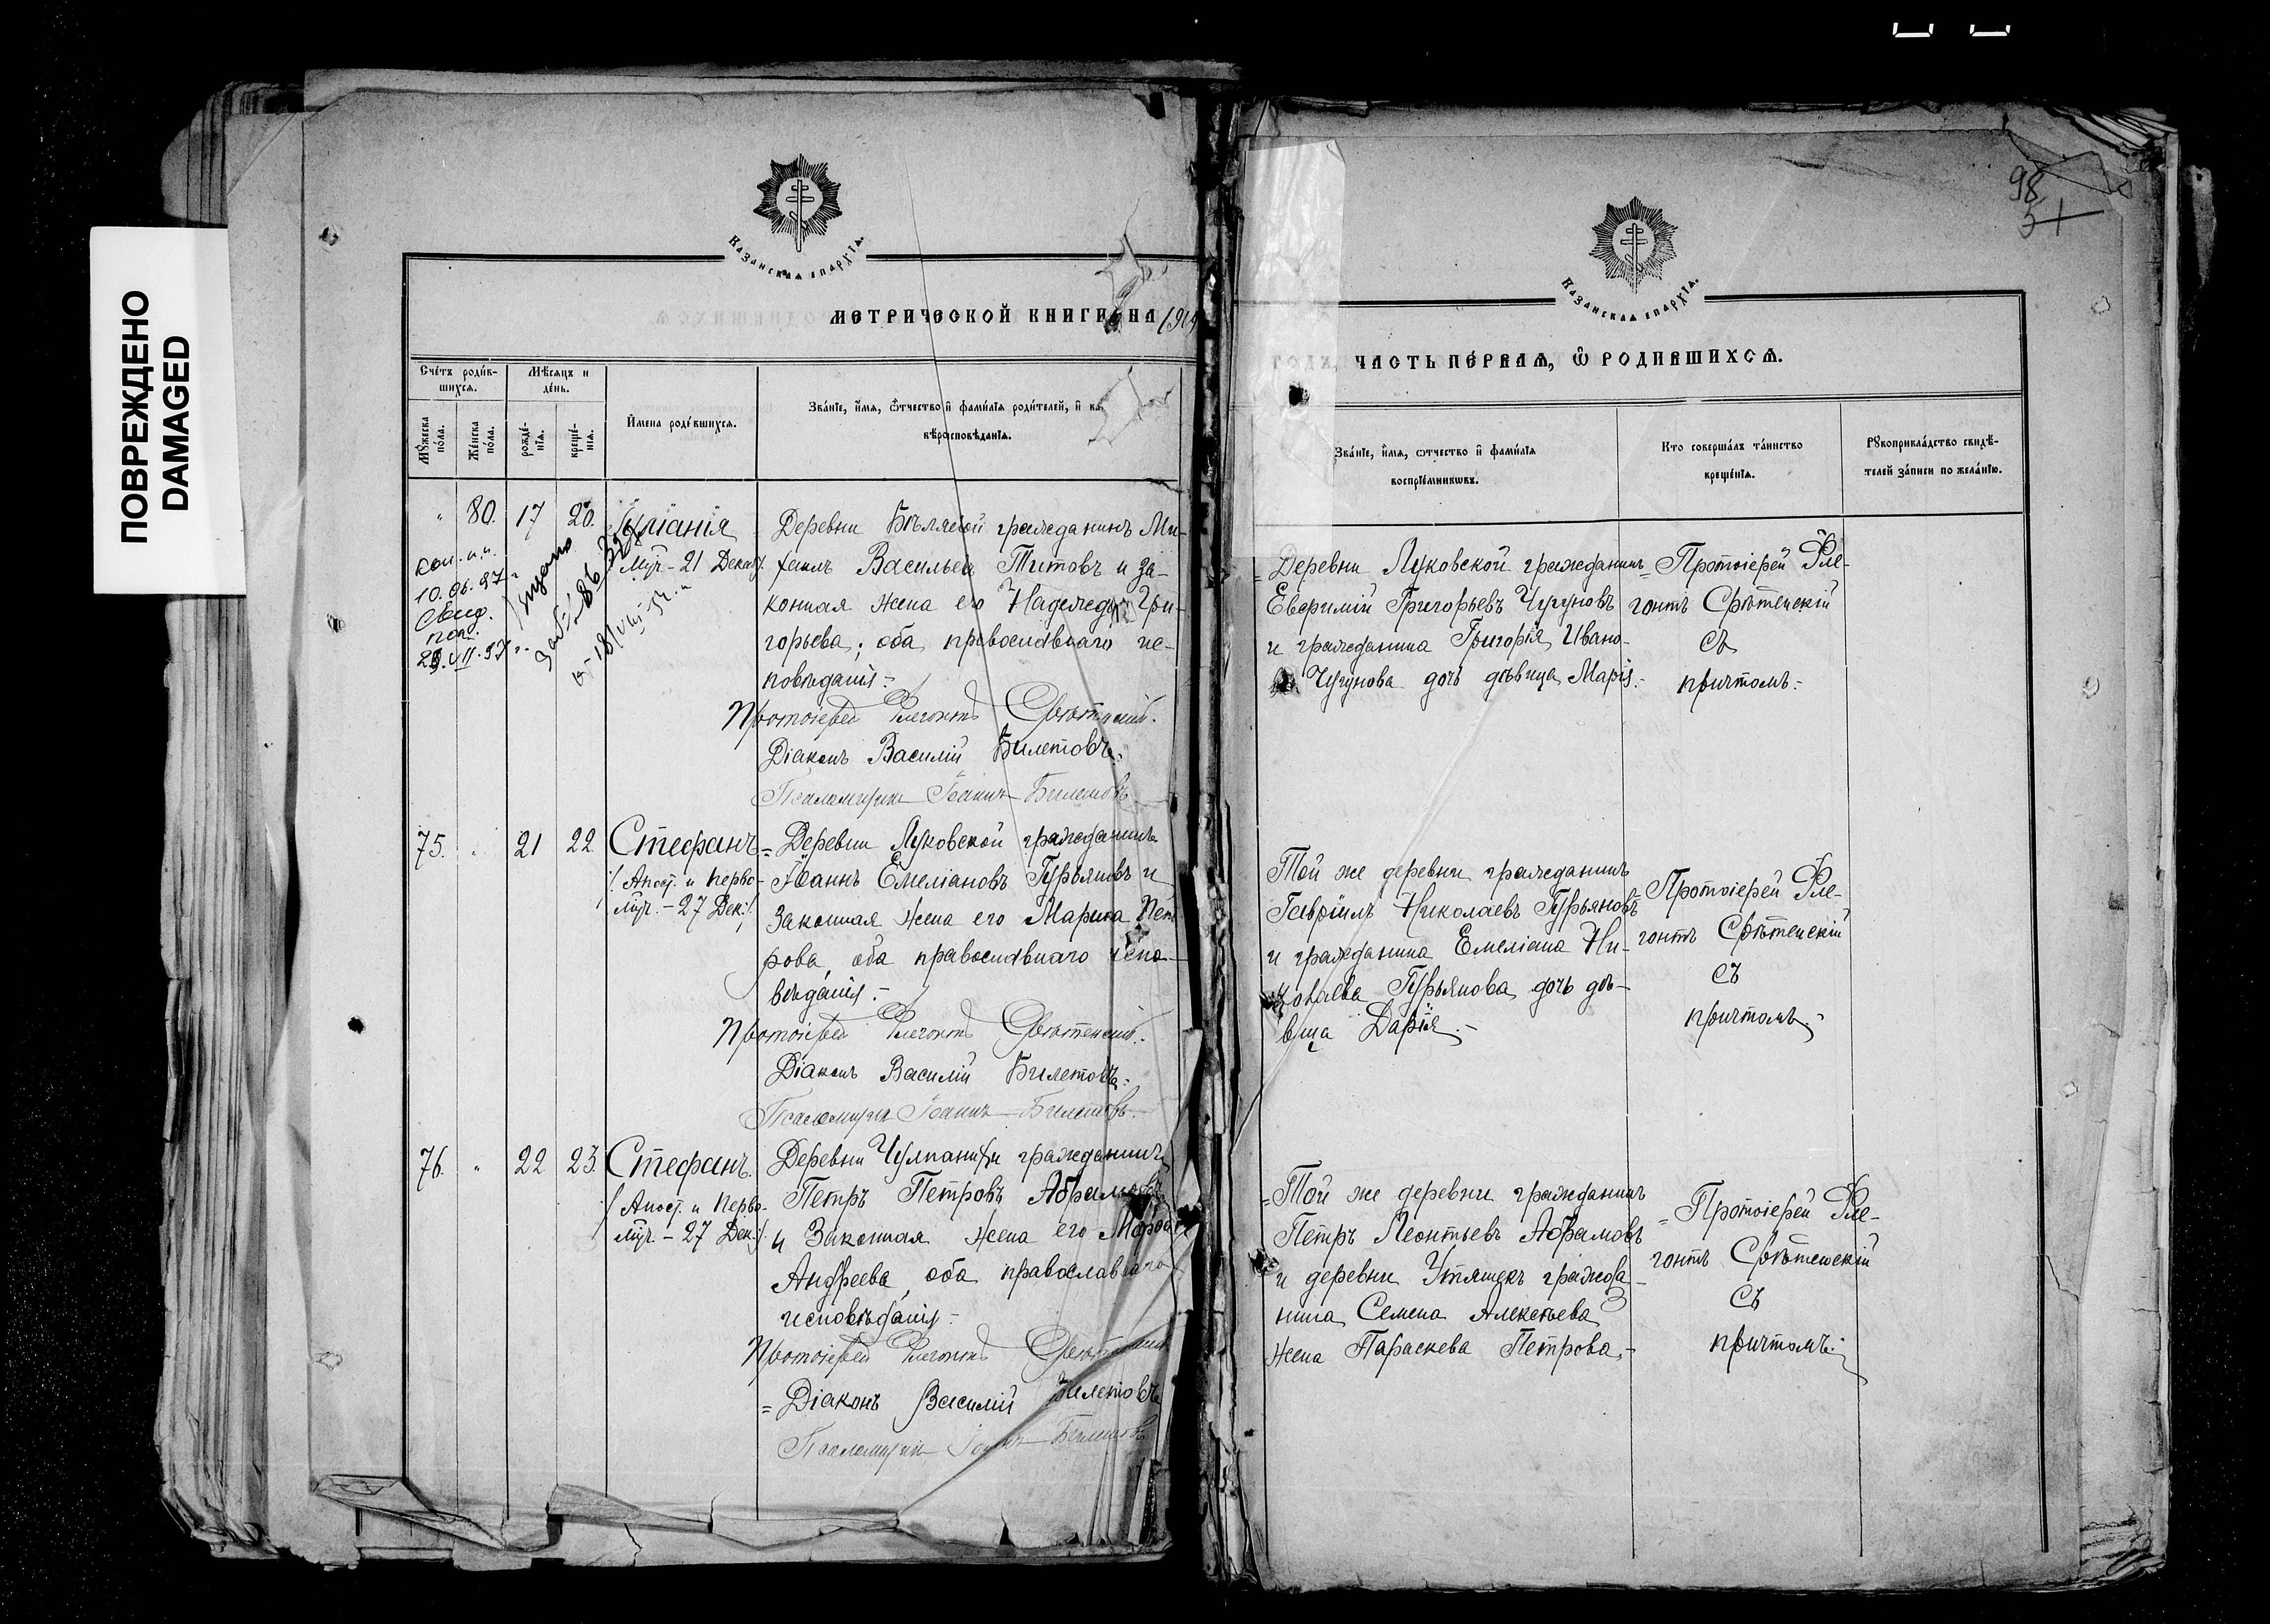 ПОВРЕЖДЕНО
DAMAGED
Казанская Епархїа.
МЕТРИЧЕСКОЙ КНИГИ НА 1919
Сче́тъ роди́в-
шихся.
Мѣ́сяцъ и
де́нь.
Мꙋ́жеска
по́ла.
Же́нска
по́ла.
рожде́-
нїѧ.
креще́-
нїѧ.
И҆мена роди́вшихся.
Зва́нїе, и҆́мя, ѻ҆́тчество и҆ фами́лїя роди́телей, и҆ ка
вѣроисповѣ́данїѧ.
" 80. 17 20. Іуліанія
Муч. - 21 Декаб.
коп. п.п.
10.06.97г.
Свид.
пол.
29.VII.97г.
Деревни Бѣляевой гражданинъ Ми-
хаилъ Васильевъ Титовъ и за-
конная жена его Надежда Гри-
горьева; оба православнаго ис-
повѣданія.-
Протоіерей Флегонтъ Срѣтенскій.
Діаконъ Василій Билетовъ.
Псаломщикъ Іоаннъ Билетовъ
75. " 21 22 Стефанъ
/. Апост. и перво-
муч. - 27 Дек./.
= Деревни Луковской гражданинъ
Іоаннъ Емеліановъ Гурьяновъ и
Законная жена его Марина Пет
рова, оба православнаго испо-
вѣданія.-
Протоіерей Флегонтъ Срѣтенскій.
Діаконъ Василій Билетовъ.
Псаломщикъ Іоаннъ Билетовъ.
76. " 22 23. Стефанъ.
/. Апост. и перво-
муч. - 27 Дек./.
Деревни Чулпанихи гражданинъ
Петръ Петровъ Абрамовъ
и Законная жена его
Андреева, оба православнаго
исповѣданія.-
Протоіерей Флегонтъ Срѣтенскій
= Діаконъ Василій Билетовъ
Псаломщикъ Іоаннъ Билетовъ
98
51
Казанская Епархїа.
ГОДА, ЧАСТЬ ПЕ́РВАѦ, Ѡ҆ РОДИ́ВШИХСѦ.
Зва́нїе, и҆́мя, ѻ҆́тчество и҆ фами́лїя
воспрїе́мникѡвъ.
Кто соверша́лъ та́инство
креще́нїѧ.
Рꙋкоприкла́дство свидѣ́-
телей за́писи по жела́нїю.
= Деревни Луковской гражданинъ
Евфимій Григорьевъ Чугуновъ
и гражданина Григорія Ивано-
ва Чугунова дочь дѣвица Марія.-
= Протоіерей Фле-
гонтъ Срѣтенскій
съ
причтомъ.-
Той же деревни гражданинъ
Гавріилъ Николаевъ Гурьяновъ
и гражданина Емеліана Ни-
колаева Гурьянова дочь дѣ-
вица Дарія.-
Протоіерей Фле-
гонтъ Срѣтенскій
съ
причтомъ.-
= Той же деревни гражданинъ
Петръ Леонтьевъ Абрамовъ
и деревни Утяшекъ гражда-
нина Семена Алексѣева
жена Параскева Петрова.-
= Протоіерей Фле-
гонтъ Срѣтенскій
съ
причтомъ.-